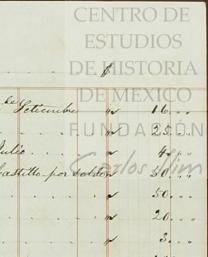 CENTRO DE
ESTUDIOS
DE HISTORIA
DE MEXICO
FUNDACIÓN
Carlos Slim
$
de Setiembre " 16...
" 25...
Julio " 4...
Castillo por saldo " 50...
" 50...
" 20...
" 3...